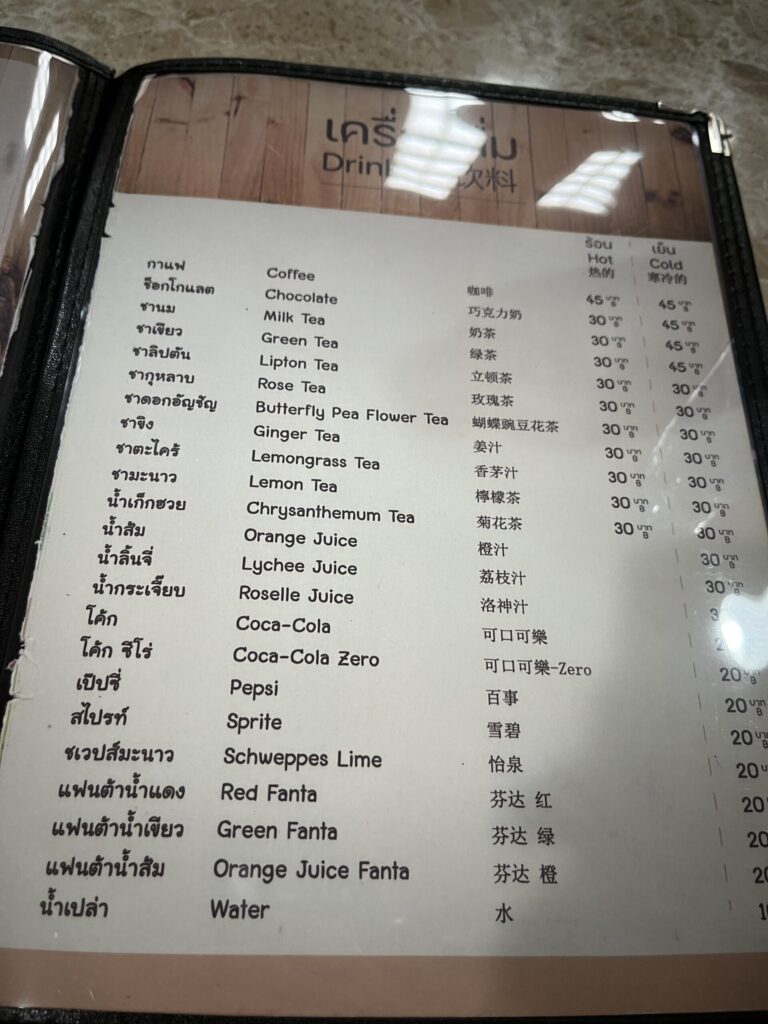 饮料
ร้อน เย็น
Hot Cold
热的 寒冷的
กาแฟ Coffee 咖啡 45 บาท ฿ 45 บาท ฿
ช็อกโกแลต Chocolate 巧克力奶 30 บาท ฿ 45 บาท ฿
ชานม Milk Tea 奶茶 30 บาท ฿ 45 บาท ฿
ชาเขียว Green Tea 绿茶 30 บาท ฿ 45 บาท ฿
ชาลิปตัน Lipton Tea 立顿茶 30 บาท ฿ 30 บาท ฿
ชากุหลาบ Rose Tea 玫瑰茶 30 บาท ฿ 30 บาท ฿
ชาดอกอัญชัญ Butterfly Pea Flower Tea 蝴蝶豌豆花茶 30 บาท ฿ 30 บาท ฿
ชาขิง Ginger Tea 姜汁 30 บาท ฿ 30 บาท ฿
ชาตะไคร้ Lemongrass Tea 香茅汁 30 บาท ฿ 30 บาท ฿
ชามะนาว Lemon Tea 檸檬茶 30 บาท ฿ 30 บาท ฿
น้ำเก็กฮวย Chrysanthemum Tea 菊花茶 30 บาท ฿ 30 บาท ฿
น้ำส้ม Orange Juice 橙汁 30 บาท ฿
น้ำลิ้นจี่ Lychee Juice 荔枝汁 30 บาท ฿
น้ำกระเจี๊ยบ Roselle Juice 洛神汁
โค้ก Coca-Cola 可口可樂
โค้ก ซีโร่ Coca-Cola Zero 可口可樂-Zero 20 บาท ฿
เป๊ปซี่ Pepsi 百事 20 บาท ฿
สไปรท์ Sprite 雪碧 20 บาท ฿
ชเวปส์มะนาว Schweppes Lime 怡泉 20
แฟนต้าน้ำแดง Red Fanta 芬达 红 20
แฟนต้าน้ำเขียว Green Fanta 芬达 绿 20
แฟนต้าน้ำส้ม Orange Juice Fanta 芬达 橙
น้ำเปล่า Water 水